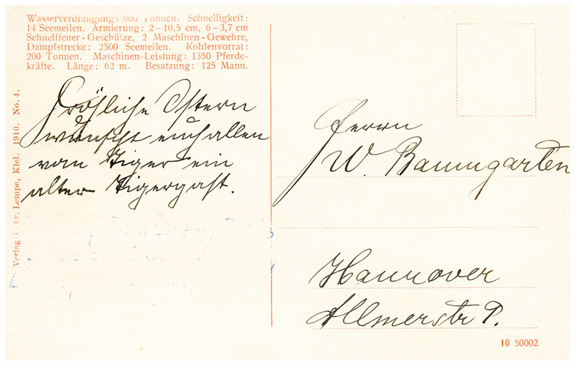 Wasserverdrängung: 900 Tonnen. Schnelligkeit:
14 Seemeilen. Armierung: 2—10,5 cm, 6—3,7 cm
Schnellfeuer-Geschütze, 2 Maschinen-Gewehre,
Dampfstrecke: 2500 Seemeilen. Kohlenvorrat:
200 Tonnen. Maschinen-Leistung: 1350 Pferde-
kräfte. Länge: 62 m. Besatzung: 125 Mann.
Fröhliche Ostern
wünscht euch allen
vom Tiger ein
alter Tigergast.
Verlag Lempe, Kiel. 1910. No. 4.
Herrn
W. Baumgarten
Hannover
10 50002